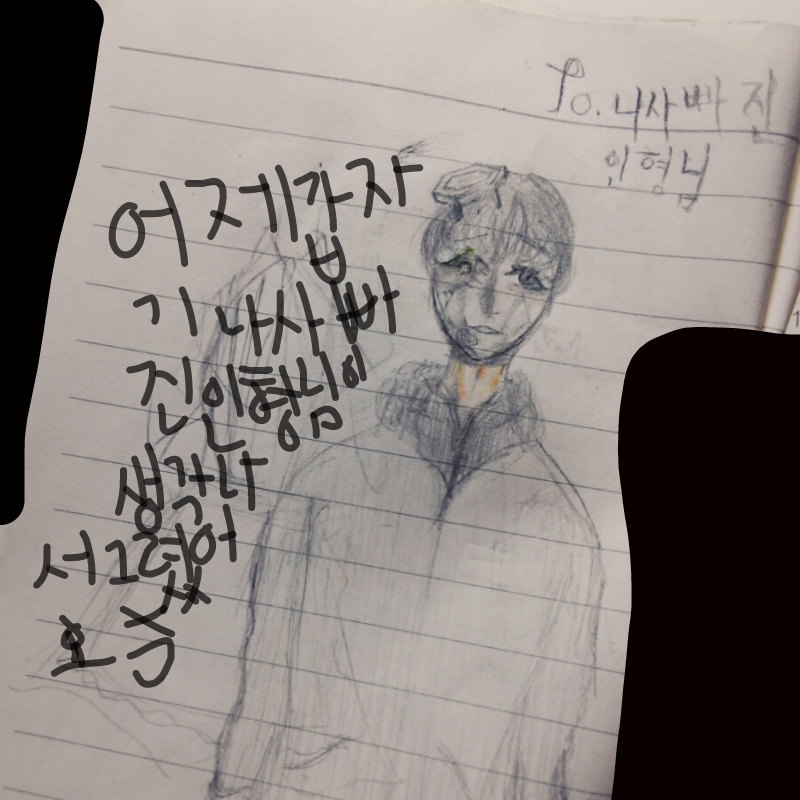 To. 나사빠진
인형님
어제갑자
기 나사빠
진인형님이
생각나
서그렸어
욯ㅊㅊ